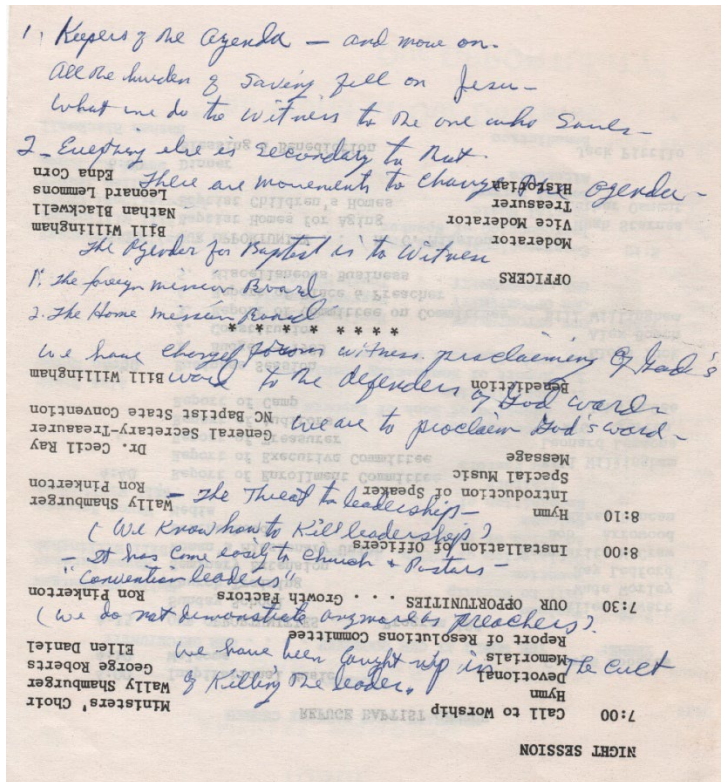 1. Keepers of the agenda — and move on.
All the burden of saving fell on Jesu—
What we do the witness to the one who saves—
2— Everything else is secondary to that.
There are movements to change the agenda—
The Agenda for Baptist is to Witness
1. The foreign mission Board
2. The Home mission Board
We have changed from witness proclaiming of God's
word to the defenders of God word—
We are to proclaim God's word—
— The Threat to leadership—
(We Know how to Kill leadership)
— It has come easily to Church + Pastors—
"Convention leaders"
(We do not demonstrate anymore as preachers).
We have been caught up in The cult
of Killing the leader."
NIGHT SESSION
7:00 Call to Worship Ministers' Choir
Hymn Wally Shamburger
Devotional George Roberts
Memorials Ellen Daniel
Report of Resolutions Committee
7:30 OUR OPPORTUNITIES . . . . Growth Factors Ron Pinkerton
8:00 Installation of Officers
8:10 Hymn Wally Shamburger
Introduction of Speaker Ron Pinkerton
Special Music
Message Dr. Cecil Ray
General Secretary-Treasurer
NC Baptist State Convention
Benediction Bill Willingham
* * * * * * * * *
OFFICERS
Moderator Bill Willingham
Vice Moderator Nathan Blackwell
Treasurer Leonard Lemmons
Historian Edna Corn